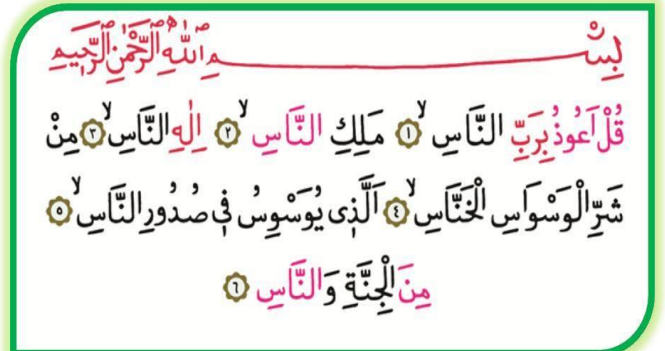 بِسْمِ اللّٰهِ الرَّحْمٰنِ الرَّحِيمِ
قُلْ اَعُوذُ بِرَبِّ النَّاسِۙ ﴿١﴾ مَلِكِ النَّاسِۙ ﴿٢﴾ اِلٰهِ النَّاسِۙ ﴿٣﴾ مِنْ
شَرِّ الْوَسْوَاسِ الْخَنَّاسِۙ ﴿٤﴾ اَلَّذِى يُوَسْوِسُ فِى صُدُورِ النَّاسِۙ ﴿٥﴾
مِنَ الْجِنَّةِ وَالنَّاسِ ﴿٦﴾